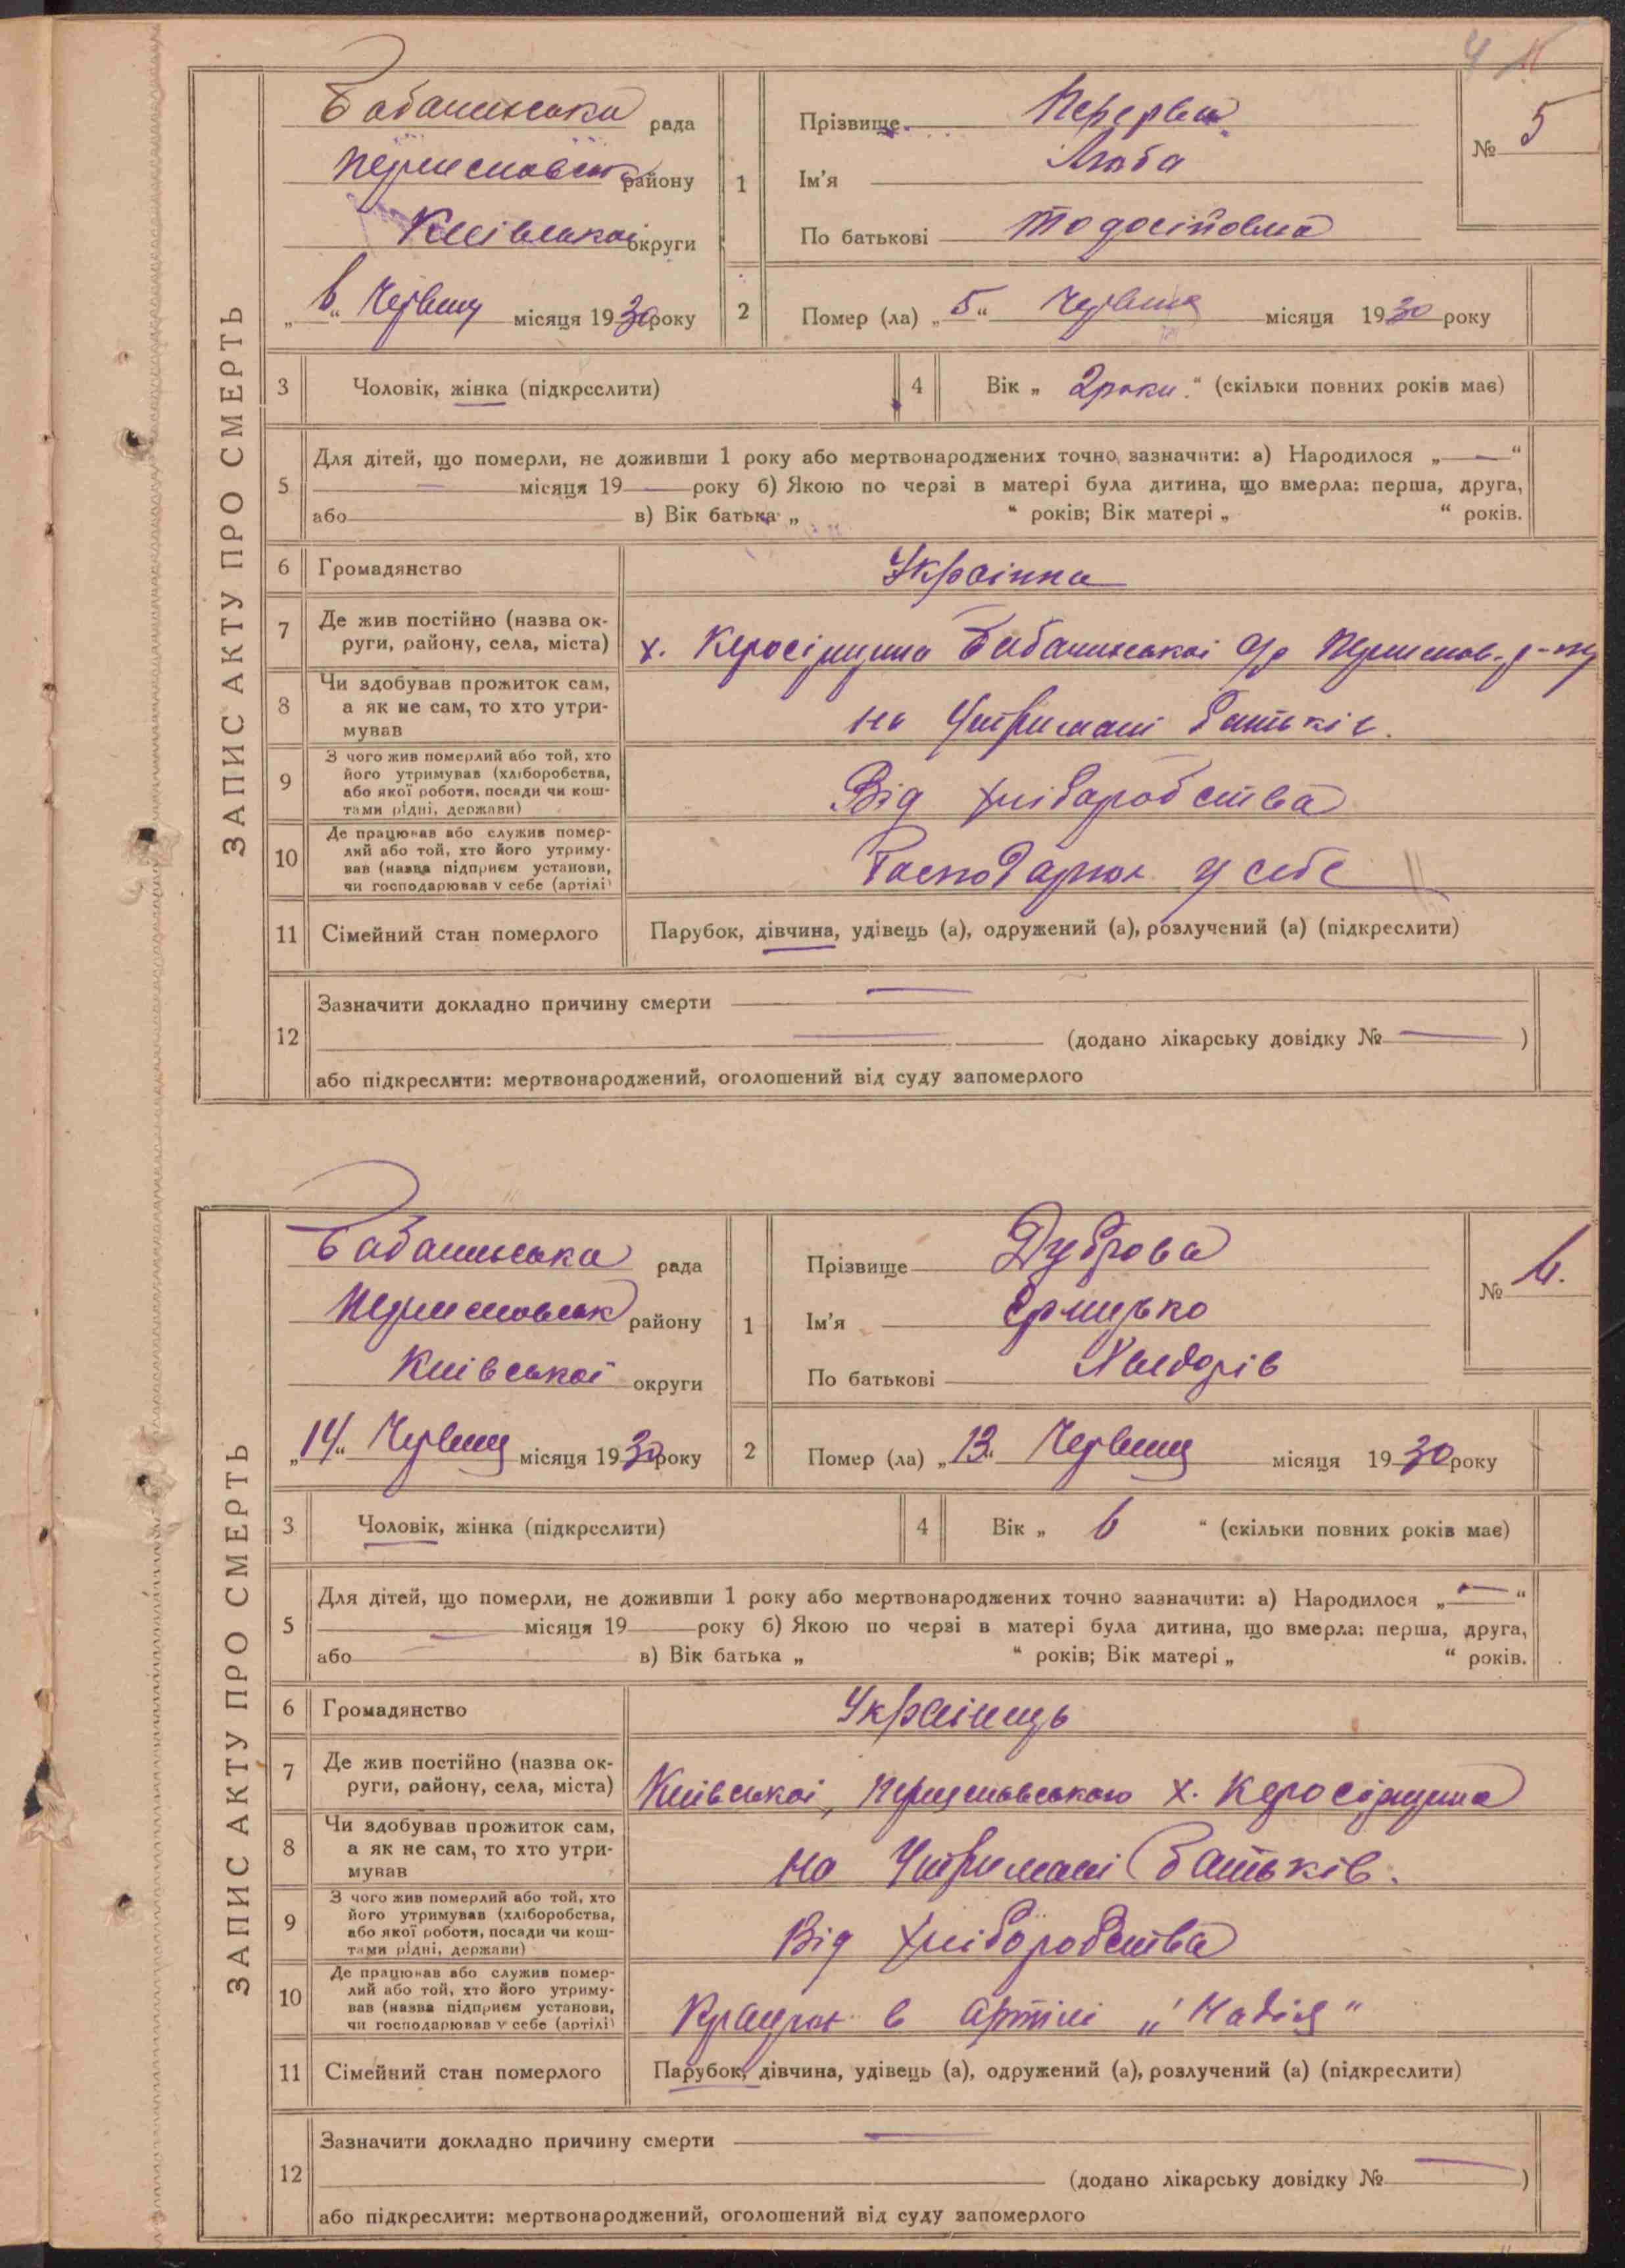 4
ЗАПИС АКТУ ПРО СМЕРТЬ
Бабачиська рада
району
Київської округи
„6“ Червня місяця 1930 року
1
Прізвище Перерва
Ім'я Люба
По батькові Тодосіївна
№ 5
2 Помер (ла) „5“ Червня місяця 1930 року
3 Чоловік, жінка (підкреслити)
4 Вік „ 2 роки. “ (скільки повних років має)
5 Для дітей, що померли, не доживши 1 року або мертвонароджених точно зазначити: а) Народилося „—“
— місяця 19— року б) Якою по черзі в матері була дитина, що вмерла: перша, друга,
або в) Вік батька „ “ років; Вік матері „ “ років.
6 Громадянство Українка
7 Де жив постійно (назва ок-
руги, району, села, міста) х. с/р р-ну
8 Чи здобував прожиток сам,
а як не сам, то хто утри-
мував на Утримані батьків.
9 З чого жив померлий або той, хто
його утримував (хліборобства,
або якої роботи, посади чи кош-
тами рідні, держави) Від хліборобства
10 Де працював або служив помер-
лий або той, хто його утриму-
вав (назва підприєм установи,
чи господарював у себе (артілі) у себе
11 Сімейний стан померлого Парубок, дівчина, удівець (а), одружений (а), розлучений (а) (підкреслити)
12 Зазначити докладно причину смерти —
— (додано лікарську довідку № — )
або підкреслити: мертвонароджений, оголошений від суду запомерлого
ЗАПИС АКТУ ПРО СМЕРТЬ
Бабачиська рада
району
Київської округи
„14“ Червня місяця 1930 року
1
Прізвище Дуброва
Ім'я
По батькові
№ 6.
2 Помер (ла) „13“ Червня місяця 1930 року
3 Чоловік, жінка (підкреслити)
4 Вік „ 6 “ (скільки повних років має)
5 Для дітей, що померли, не доживши 1 року або мертвонароджених точно зазначити: а) Народилося „—“
— місяця 19 року б) Якою по черзі в матері була дитина, що вмерла: перша, друга,
або в) Вік батька „ “ років; Вік матері „ “ років.
6 Громадянство Українець
7 Де жив постійно (назва ок-
руги, району, села, міста) Київської, х.
8 Чи здобував прожиток сам,
а як не сам, то хто утри-
мував на Утримані батьків.
9 З чого жив померлий або той, хто
його утримував (хліборобства,
або якої роботи, посади чи кош-
тами рідні, держави) Від хліборобства
10 Де працював або служив помер-
лий або той, хто його утриму-
вав (назва підприєм установи,
чи господарював у себе (артілі) в артілі „Надія“
11 Сімейний стан померлого Парубок, дівчина, удівець (а), одружений (а), розлучений (а) (підкреслити)
12 Зазначити докладно причину смерти —
(додано лікарську довідку № — )
або підкреслити: мертвонароджений, оголошений від суду запомерлого